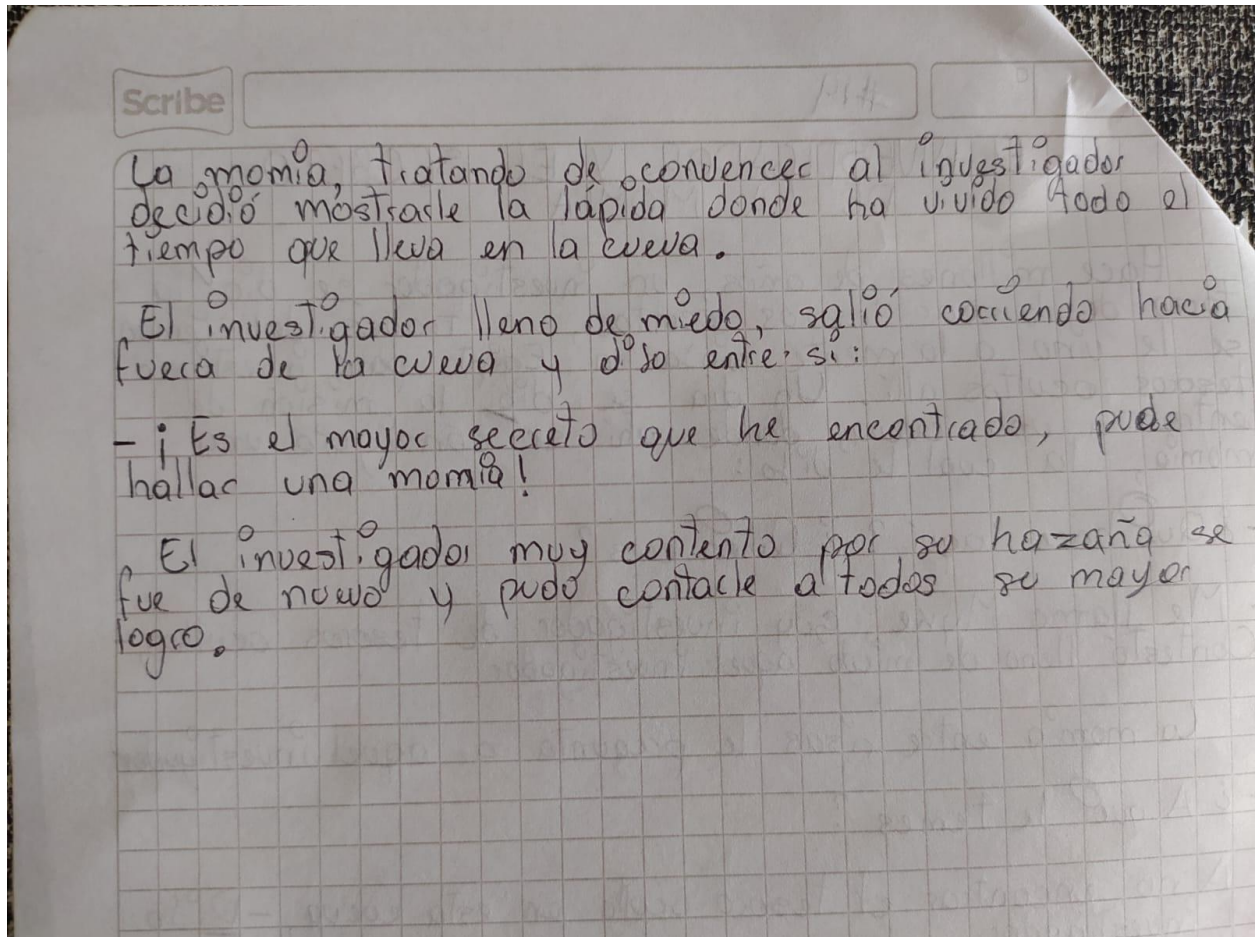 Scribe
La momia, tratando de convencer al investigador
decidió mostrarle la lápida donde ha vivido todo el
tiempo que lleva en la cueva.
El investigador lleno de miedo, salió corriendo hacia
fuera de la cueva y dijo entre sí:
- ¡Es el mayor secreto que he encontrado, pude
hallar una momia!
El investigador muy contento por su hazaña se
fue de nuevo y pudo contarle a todos su mayor
logro.